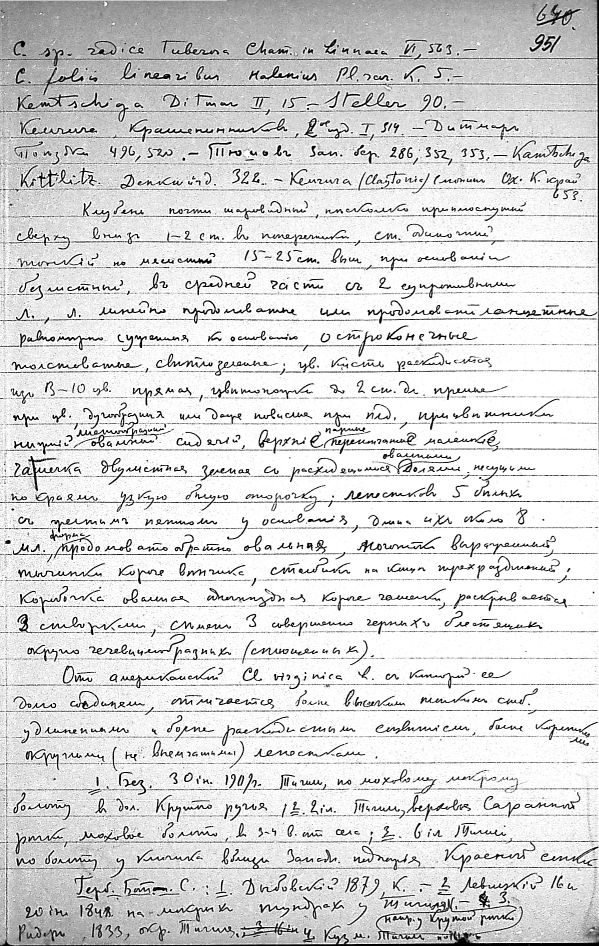 640.
951
C. sp. radice tuberosa Cham. in Linnaea VI, 563. –
C. foliis linearibus Halenius Pl. rar. K. 5. –
Kemtschiga Ditmar II, 15. – Steller 90. –
Кемчига, Крашенинниковъ, 2ое изд. I, 314. – Дитмаръ
Поѣздки 496, 520. – Тюшовъ Зап. бер. 286, 352, 353. – Kamtschiga
Kittlitz. Denkwürd. 322. – Кемчига (Claytonia) Слюнинъ Ох. К. край
653.
Клубень почти шаровидный, нѣсколько приплюснутый
сверху внизъ 1–2 ст. въ поперечникѣ, ст. одиночный,
тонкій но мясистый 15–25 ст. выш., при основаніи
безлистный, въ средней части съ 2 супротивными
л., л. линейно продолговатые или продолговато ланцетные
равномѣрно суженные къ основанію, остроконечные
толстоватые, свѣтлозеленые; цв. кисть раскидистая
изъ 3–10 цв. прямая, цвѣтоножки до 2 ст. дл. прямые
при цв., дугообразныя или даже повислыя при пл., прицвѣтники
нижній листообразный овальный сидячій, верхніе парные перепончатые маленькіе,
чашечка двулистная зеленая съ расходящимися овальными долями, несущими
по краямъ узкую бѣлую оторочку; лепестковъ 5 бѣлыхъ
съ желтымъ пятномъ у основанія, длина ихъ около 8
мл., форма продолговато обратно овальная, ноготокъ выраженный,
тычинки короче вѣнчика, столбикъ на концѣ трехраздѣльный;
коробочка овальная одногнѣздная короче чашечки, раскрывается
3 створками, сѣмянъ 3 совершенно черныхъ блестящихъ
округло чечевицеобразныхъ (сплюснутыхъ).
Отъ американской Cl. virginica L. съ которой ее
долго соединяли, отличается болѣе высокимъ тонкимъ стеб.,
удлиненнымъ и болѣе раскидистымъ соцвѣтіемъ, болѣе короткими
округлыми (не выемчатыми) лепестками.
1. Без. 30 іюн. 1909 г. Тигиль, по моховому мокрому
болоту въ дол. Крутого ручья; 2. 2 іл. Тигиль, верховья Саранной
рѣчки, моховое болото, въ 3-4 в. отъ села; 3. 6 іл. Тигиль,
по болоту у ключика вблизи Западн. подножья Красной сопки
Герб. Бот. С.: 1. Дыбовскій 1879, К. – 2 Левицкій 16 и
20 іюн. 1848 на мокрыхъ тундрахъ у Тигиля. – 3.
Ридеръ 1833, окр. Тигиля, 4. Кузм. Тигиль
напр. у Крутой рѣчки